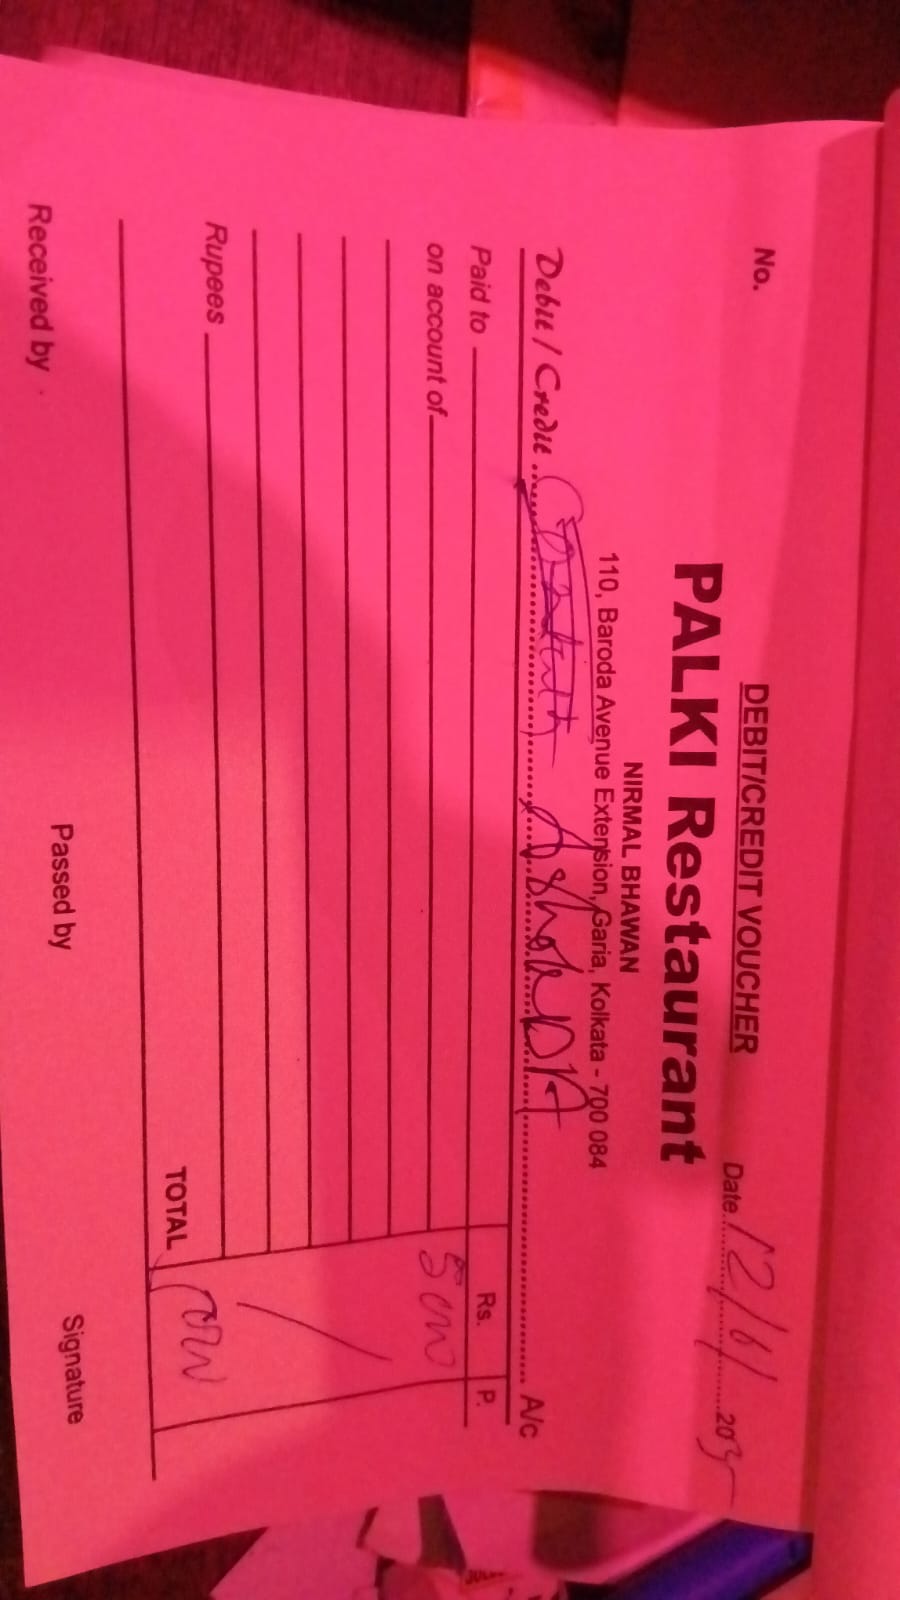 DEBIT/CREDIT VOUCHER
No.
Date 12/6/ 20
PALKI Restaurant
NIRMAL BHAWAN
110, Baroda Avenue Extension, Garia, Kolkata - 700 084
Debit / Credit ........ Ashok DA ........ A/c
Paid to
Rs. P.
on account of 5000
Rupees
TOTAL
Received by
Passed by
Signature